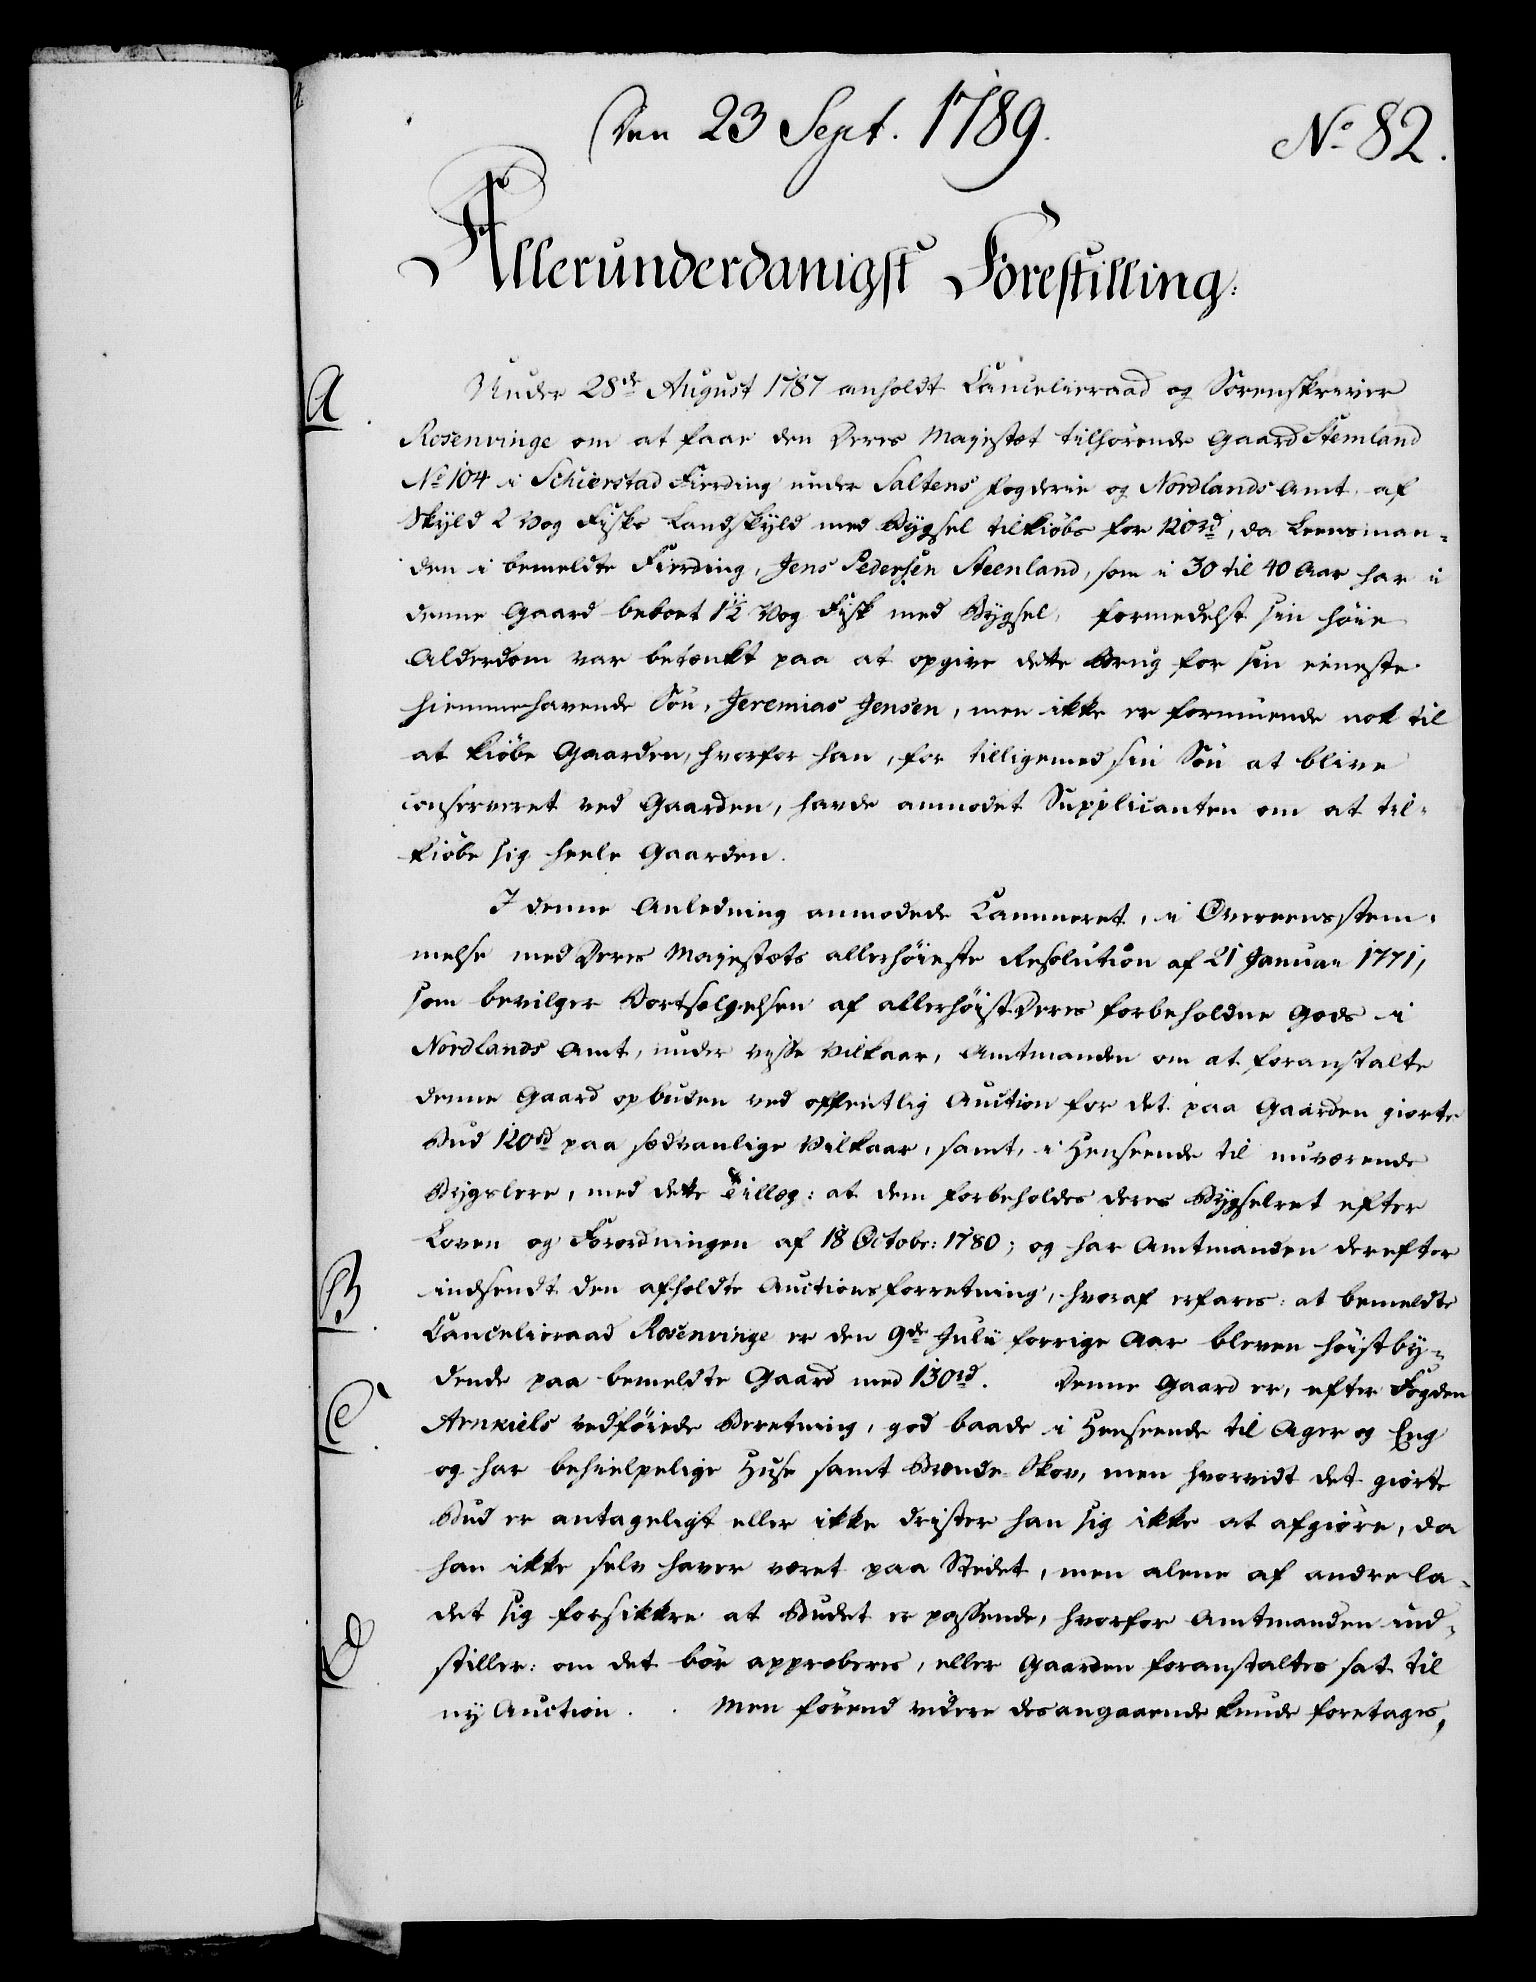 Den 23 Sept. 1789.
No 82.
Allerunderdanigst Forestilling:
A
Under 28de August 1787 anholdt Cancelieraad og Sorenskriver
Rosenvinge om at faae den Deres Majestæt tilhörende Gaard Stemland
No 104 i Schierstad Fierding under Saltens Fogderie og Nordlands Amt, af
Skyld 2 Vog Fiske Landskyld med Bygsel tilkiöbs for 120rd, da Leensman-
den i bemeldte Fierding, Jens Pedersen Steenland, som i 30 til 40 Aar har i
denne Gaard beboet 1½ Vog Fisk med Bygsel, formedelst sin höie
Alderdom var betænkt paa at opgive dette Brug for sin eeneste
hiemmehavende Sön, Jeremias Jensen, men ikke er formuende nok til
at kiöbe Gaarden, hvorfor han, for tilligemed sin Sön at blive
conserveret ved Gaarden, havde anmodet Supplicanten om at til-
kiöbe sig heele Gaarden.
I denne Anledning anmodede Kammeret, i Overeensstem-
melse med Deres Majestæts allerhöieste Resolution af 21 Januar 1771,
som bevilger Bortsælgelsen af allerhöist Deres forbeholdne Gods i
Nordlands Amt, under visse Vilkaar, Amtmanden om at foranstalte
denne Gaard opbuden ved offentlig Auction for det paa Gaarden giorte
Bud 120rd paa sædvanlige Vilkaar, samt, i Henseende til nuværende
Bygslere, med dette Tillæg: at dem forbeholdes deres Bygselret efter
Loven og Forordningen af 18 Octobr: 1780; og har Amtmanden derefter
B
indsendt den afholdte Auctionsforretning, hvoraf erfares: at bemeldte
Cancelieraad Rosenvinge er den 9de Julii forrige Aar bleven höistby-
dende paa bemeldte Gaard med 130rd. Denne Gaard er, efter Fogden
C
Arnkiels vedföiede Beretning, god baade i Henseende til Ager og Eng
og har behielpelige Huse samt Brænde-Skov, men hvorvidt det giorte
Bud er antageligt eller ikke drister han sig ikke at afgiöre, da
han ikke selv haver været paa Stedet, men alene af andre la-
det sig forsikkre at Budet er passende, hvorfor Amtmanden ind-
D
stiller: om det bör approberes, eller Gaarden foranstaltes sat til
ny Auction. Men förend videre desangaaende kunde foretages,